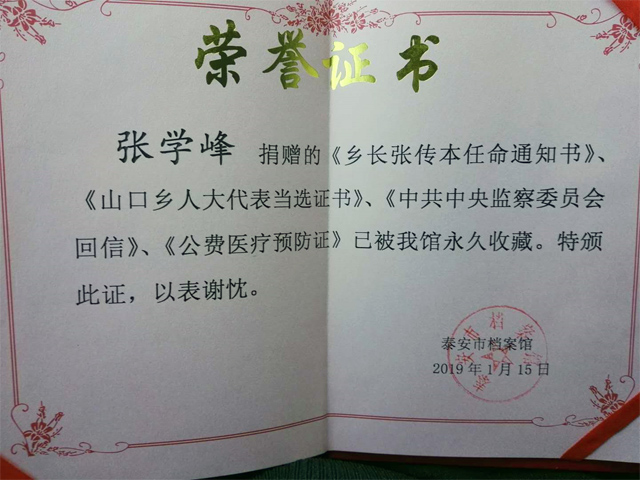 荣誉证书
张学峰 捐赠的《乡长张传本任命通知书》、
《山口乡人大代表当选证书》、《中共中央监察委员会
回信》、《公费医疗预防证》已被我馆永久收藏。特颁
此证，以表谢忱。
泰安市档案馆
2019年1月15日
泰安市档案馆